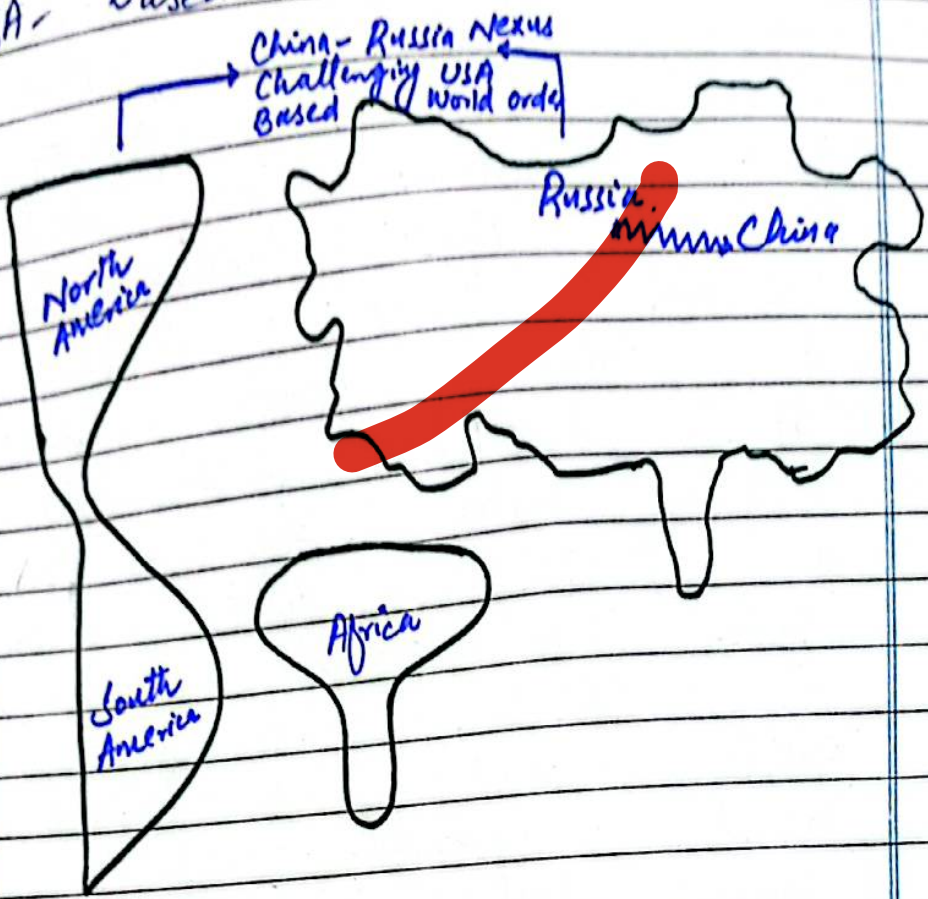 A-
China - Russia Nexus
Challenging USA
Based World order
Russia
China
North
America
Africa
South
America